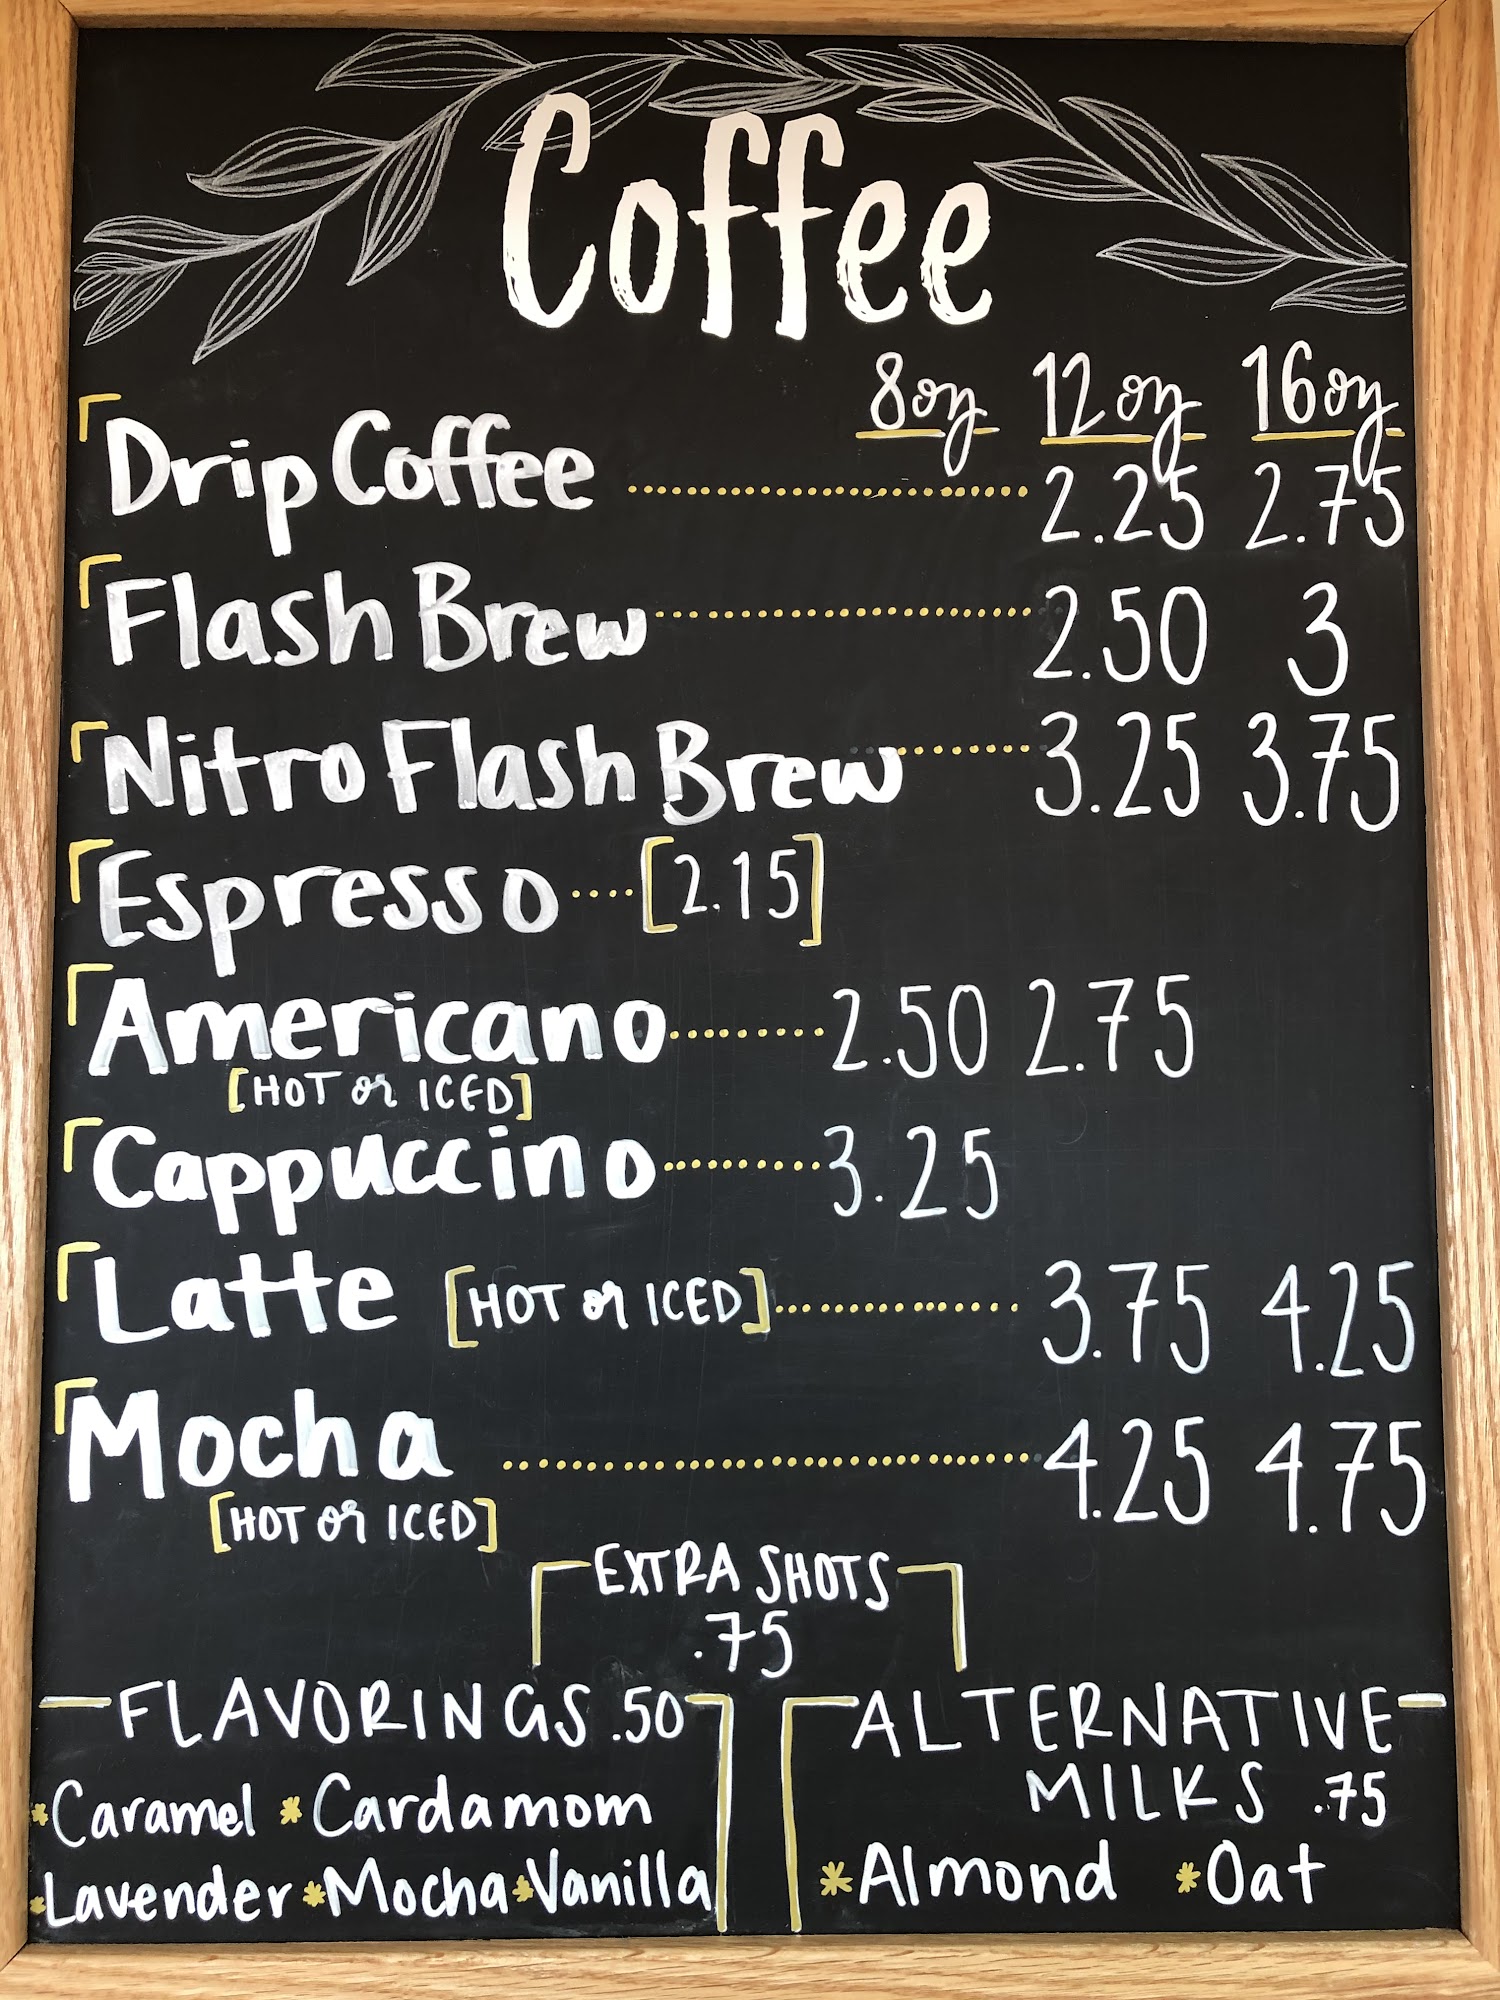 Coffee
8oz 12oz 16oz
Drip Coffee 2.25 2.75
Flash Brew 2.50 3
Nitro Flash Brew 3.25 3.75
Espresso [2.15]
Americano 2.50 2.75
[HOT or ICED]
Cappuccino 3.25
Latte [HOT or ICED] 3.75 4.25
Mocha 4.25 4.75
[HOT or ICED]
EXTRA SHOTS
.75
FLAVORINGS .50
*Caramel *Cardamom
*Lavender *Mocha *Vanilla
ALTERNATIVE
MILKS .75
*Almond *Oat